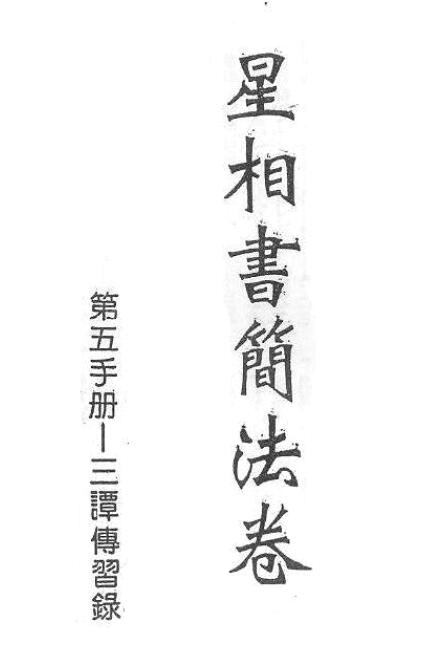 星相書簡法卷
第五手册—三譚傳習錄